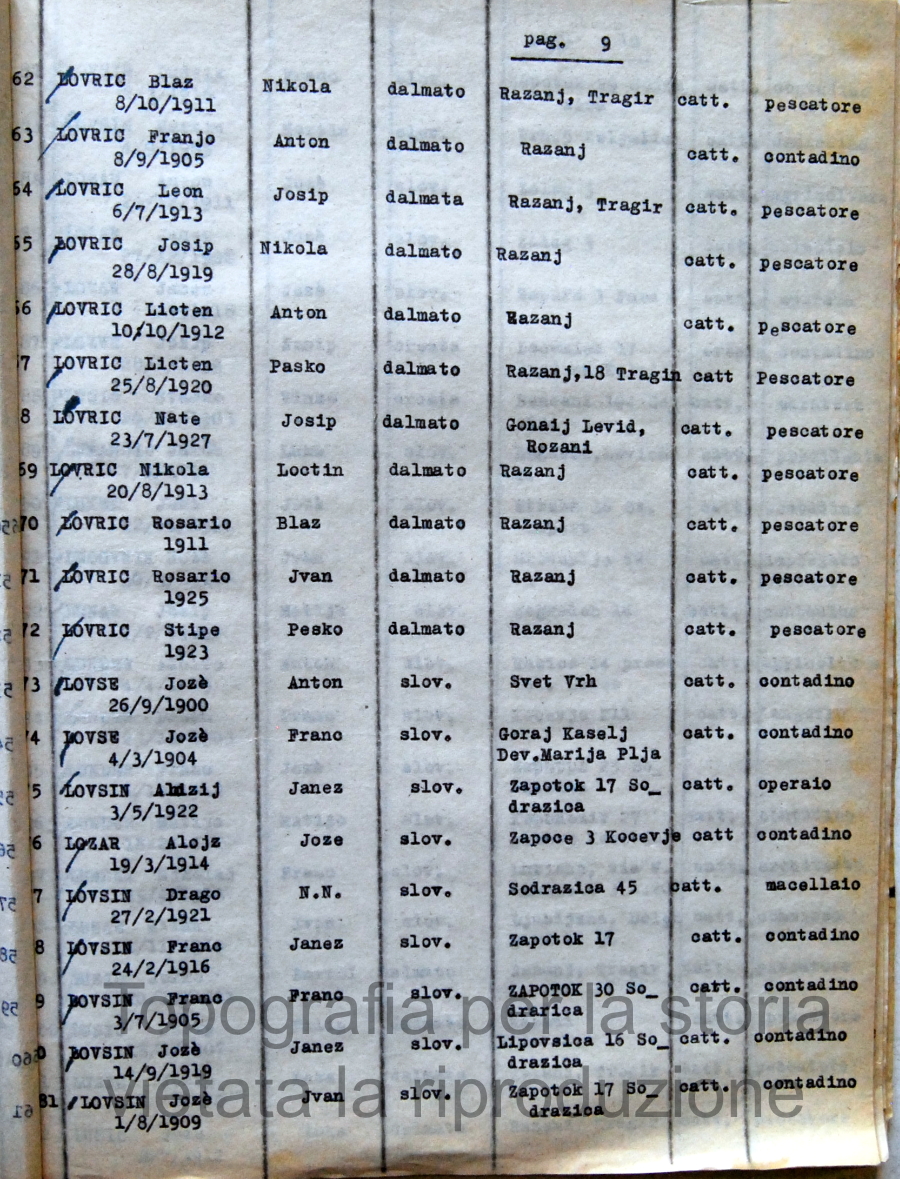 pag. 9
62 LOVRIC Blaz Nikola dalmato Razanj, Tragir catt. pescatore
8/10/1911
63 LOVRIC Franjo Anton dalmato Razanj catt. contadino
8/9/1905
64 LOVRIC Leon Josip dalmata Razanj, Tragir catt. pescatore
6/7/1913
65 LOVRIC Josip Nikola dalmato Razanj catt. pescatore
28/8/1919
66 LOVRIC Licten Anton dalmato Razanj catt. pescatore
10/10/1912
7 LOVRIC Licten Pasko dalmato Razanj,18 Tragin catt Pescatore
25/8/1920
8 LOVRIC Nate Josip dalmato Gonaij Levid, catt. pescatore
23/7/1927 Rozani
69 LOVRIC Nikola Loctin dalmato Razanj catt. pescatore
20/8/1913
70 LOVRIC Rosario Blaz dalmato Razanj catt. pescatore
1911
71 LOVRIC Rosario Jvan dalmato Razanj catt. pescatore
1925
72 LOVRIC Stipe Pesko dalmato Razanj catt. pescatore
1923
73 LOVSE Jozè Anton slov. Svet Vrh catt. contadino
26/9/1900
4 LOVSE Jozè Franc slov. Goraj Kaselj catt. contadino
4/3/1904 Dev.Marija Plja
5 LOVSIN Janez slov. Zapotok 17 So_ catt. operaio
3/5/1922 drazica
6 LOZAR Alojz Joze slov. Zapoce 3 Kocevje catt contadino
19/3/1914
7 LOVSIN Drago N.N. slov. Sodrazica 45 catt. macellaio
27/2/1921
8 LOVSIN Franc Janez slov. Zapotok 17 catt. contadino
24/2/1916
9 LOVSIN Franc Franc slov. ZAPOTOK 30 So_ catt. contadino
3/7/1905 drarica
0 LOVSIN Jozè Janez slov. Lipovsica 16 So_ catt. contadino
14/9/1919 drazica
81 LOVSIN Jozè Jvan slov. Zapotok 17 So_ catt. contadino
1/8/1909 drazica
Topografia per la storia
vietata la riproduzione